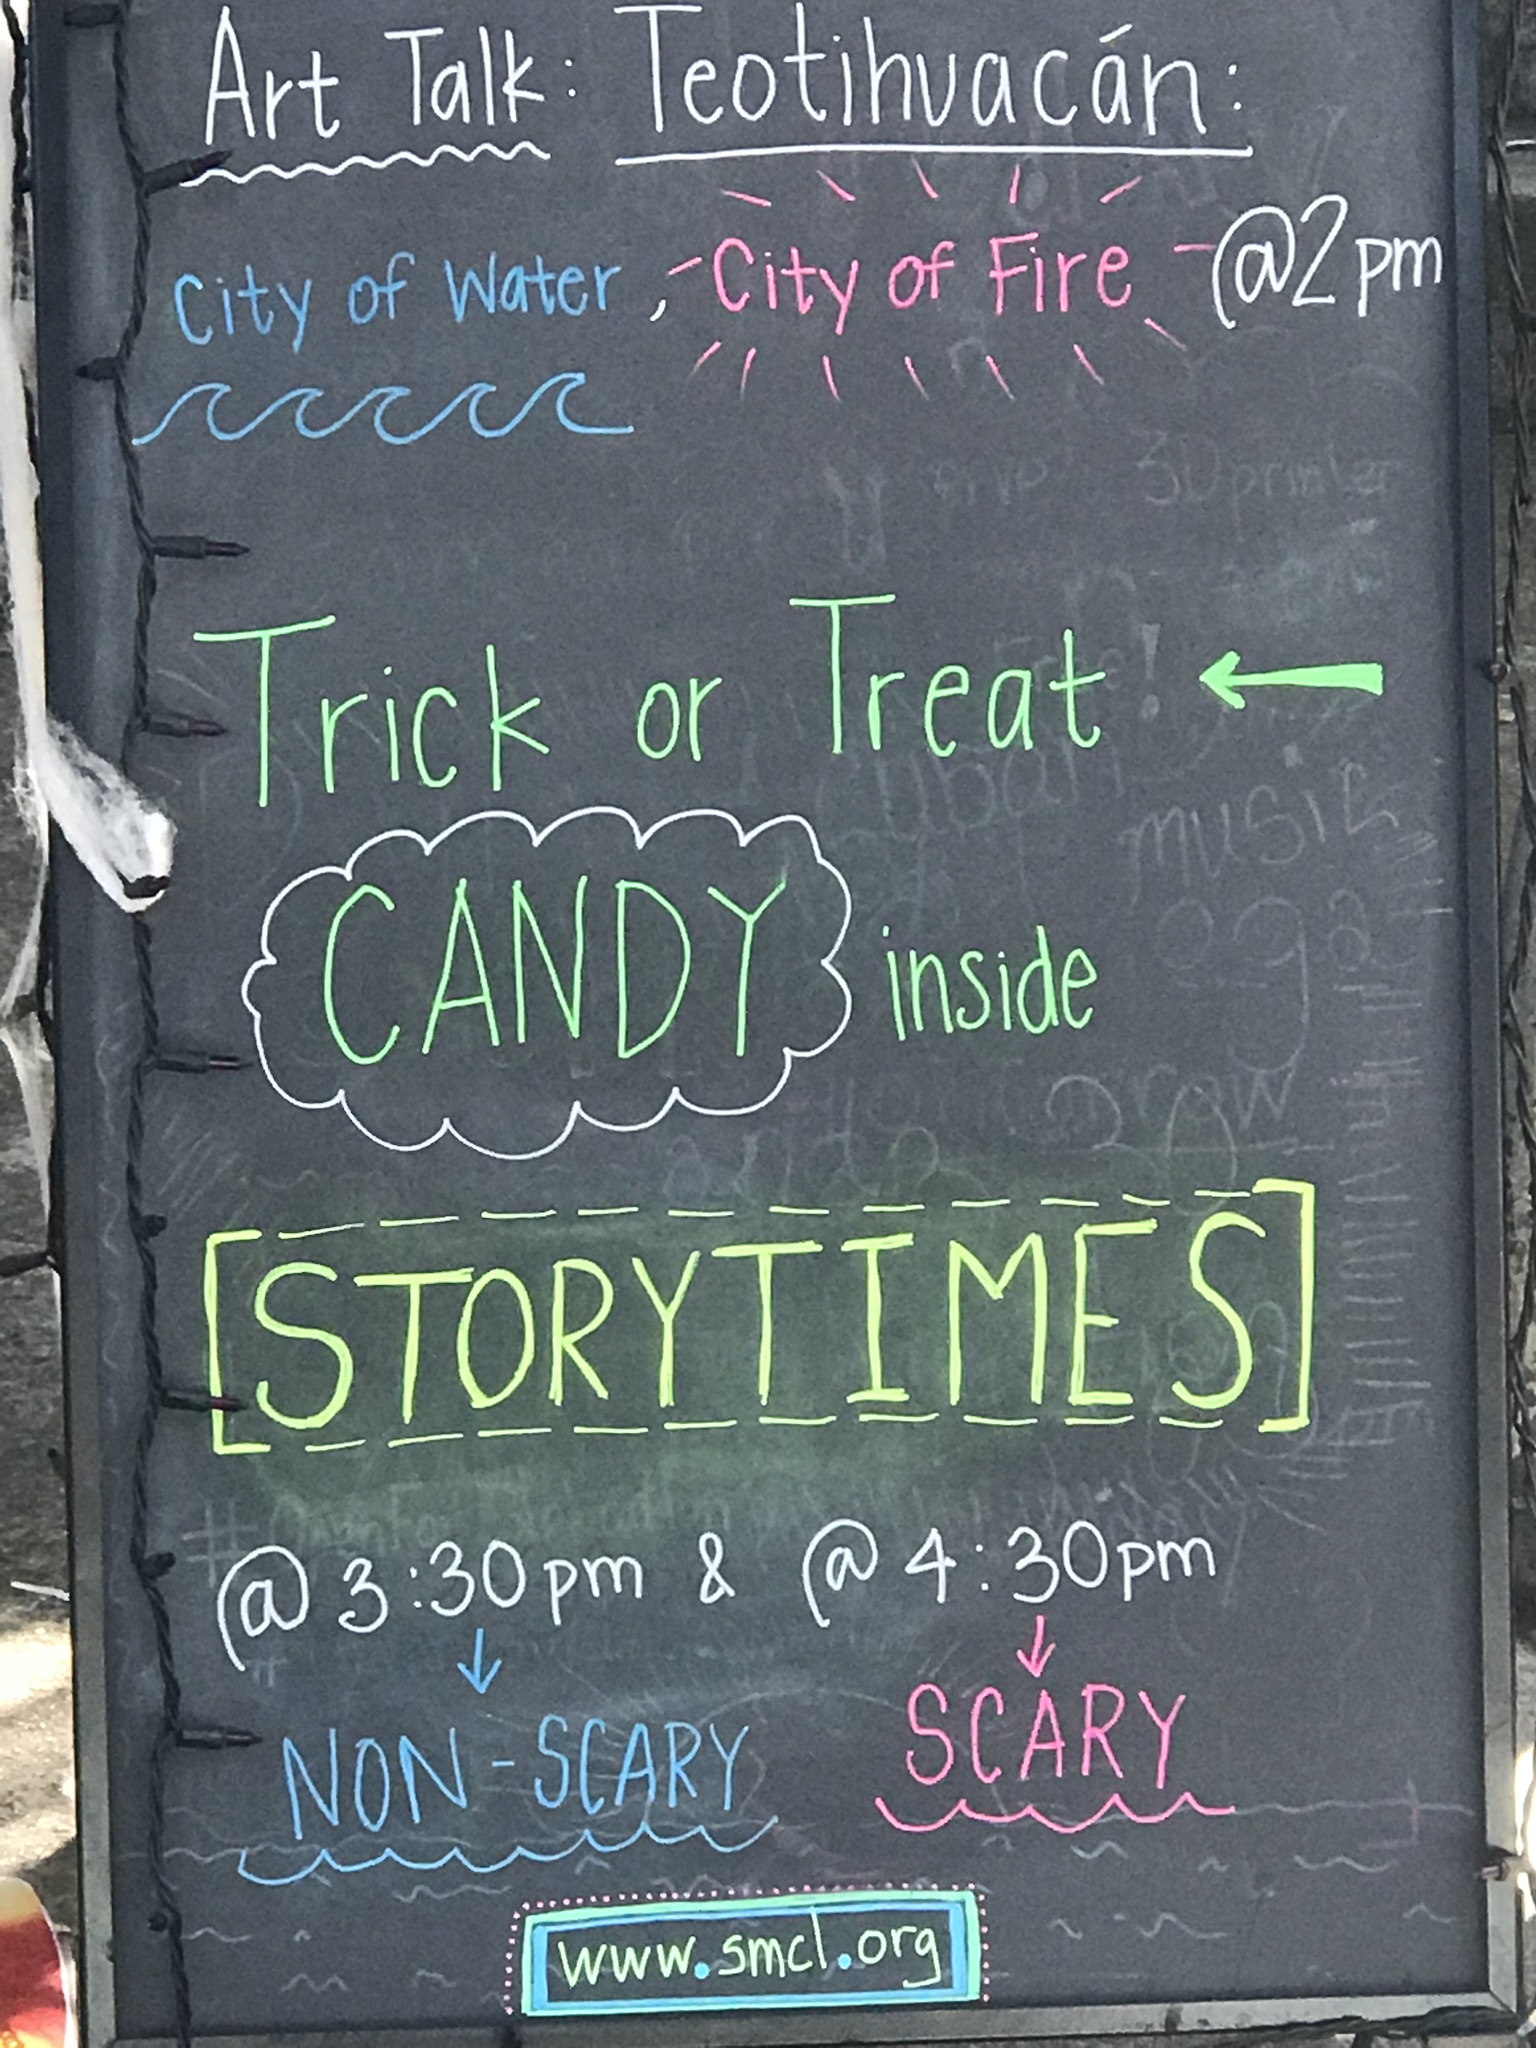 Art Talk: Teotihuacán:
City of Water, City of Fire @2pm
Trick or Treat
CANDY inside
[STORYTIMES]
@3:30pm & @4:30pm
NON-SCARY SCARY
www.smcl.org